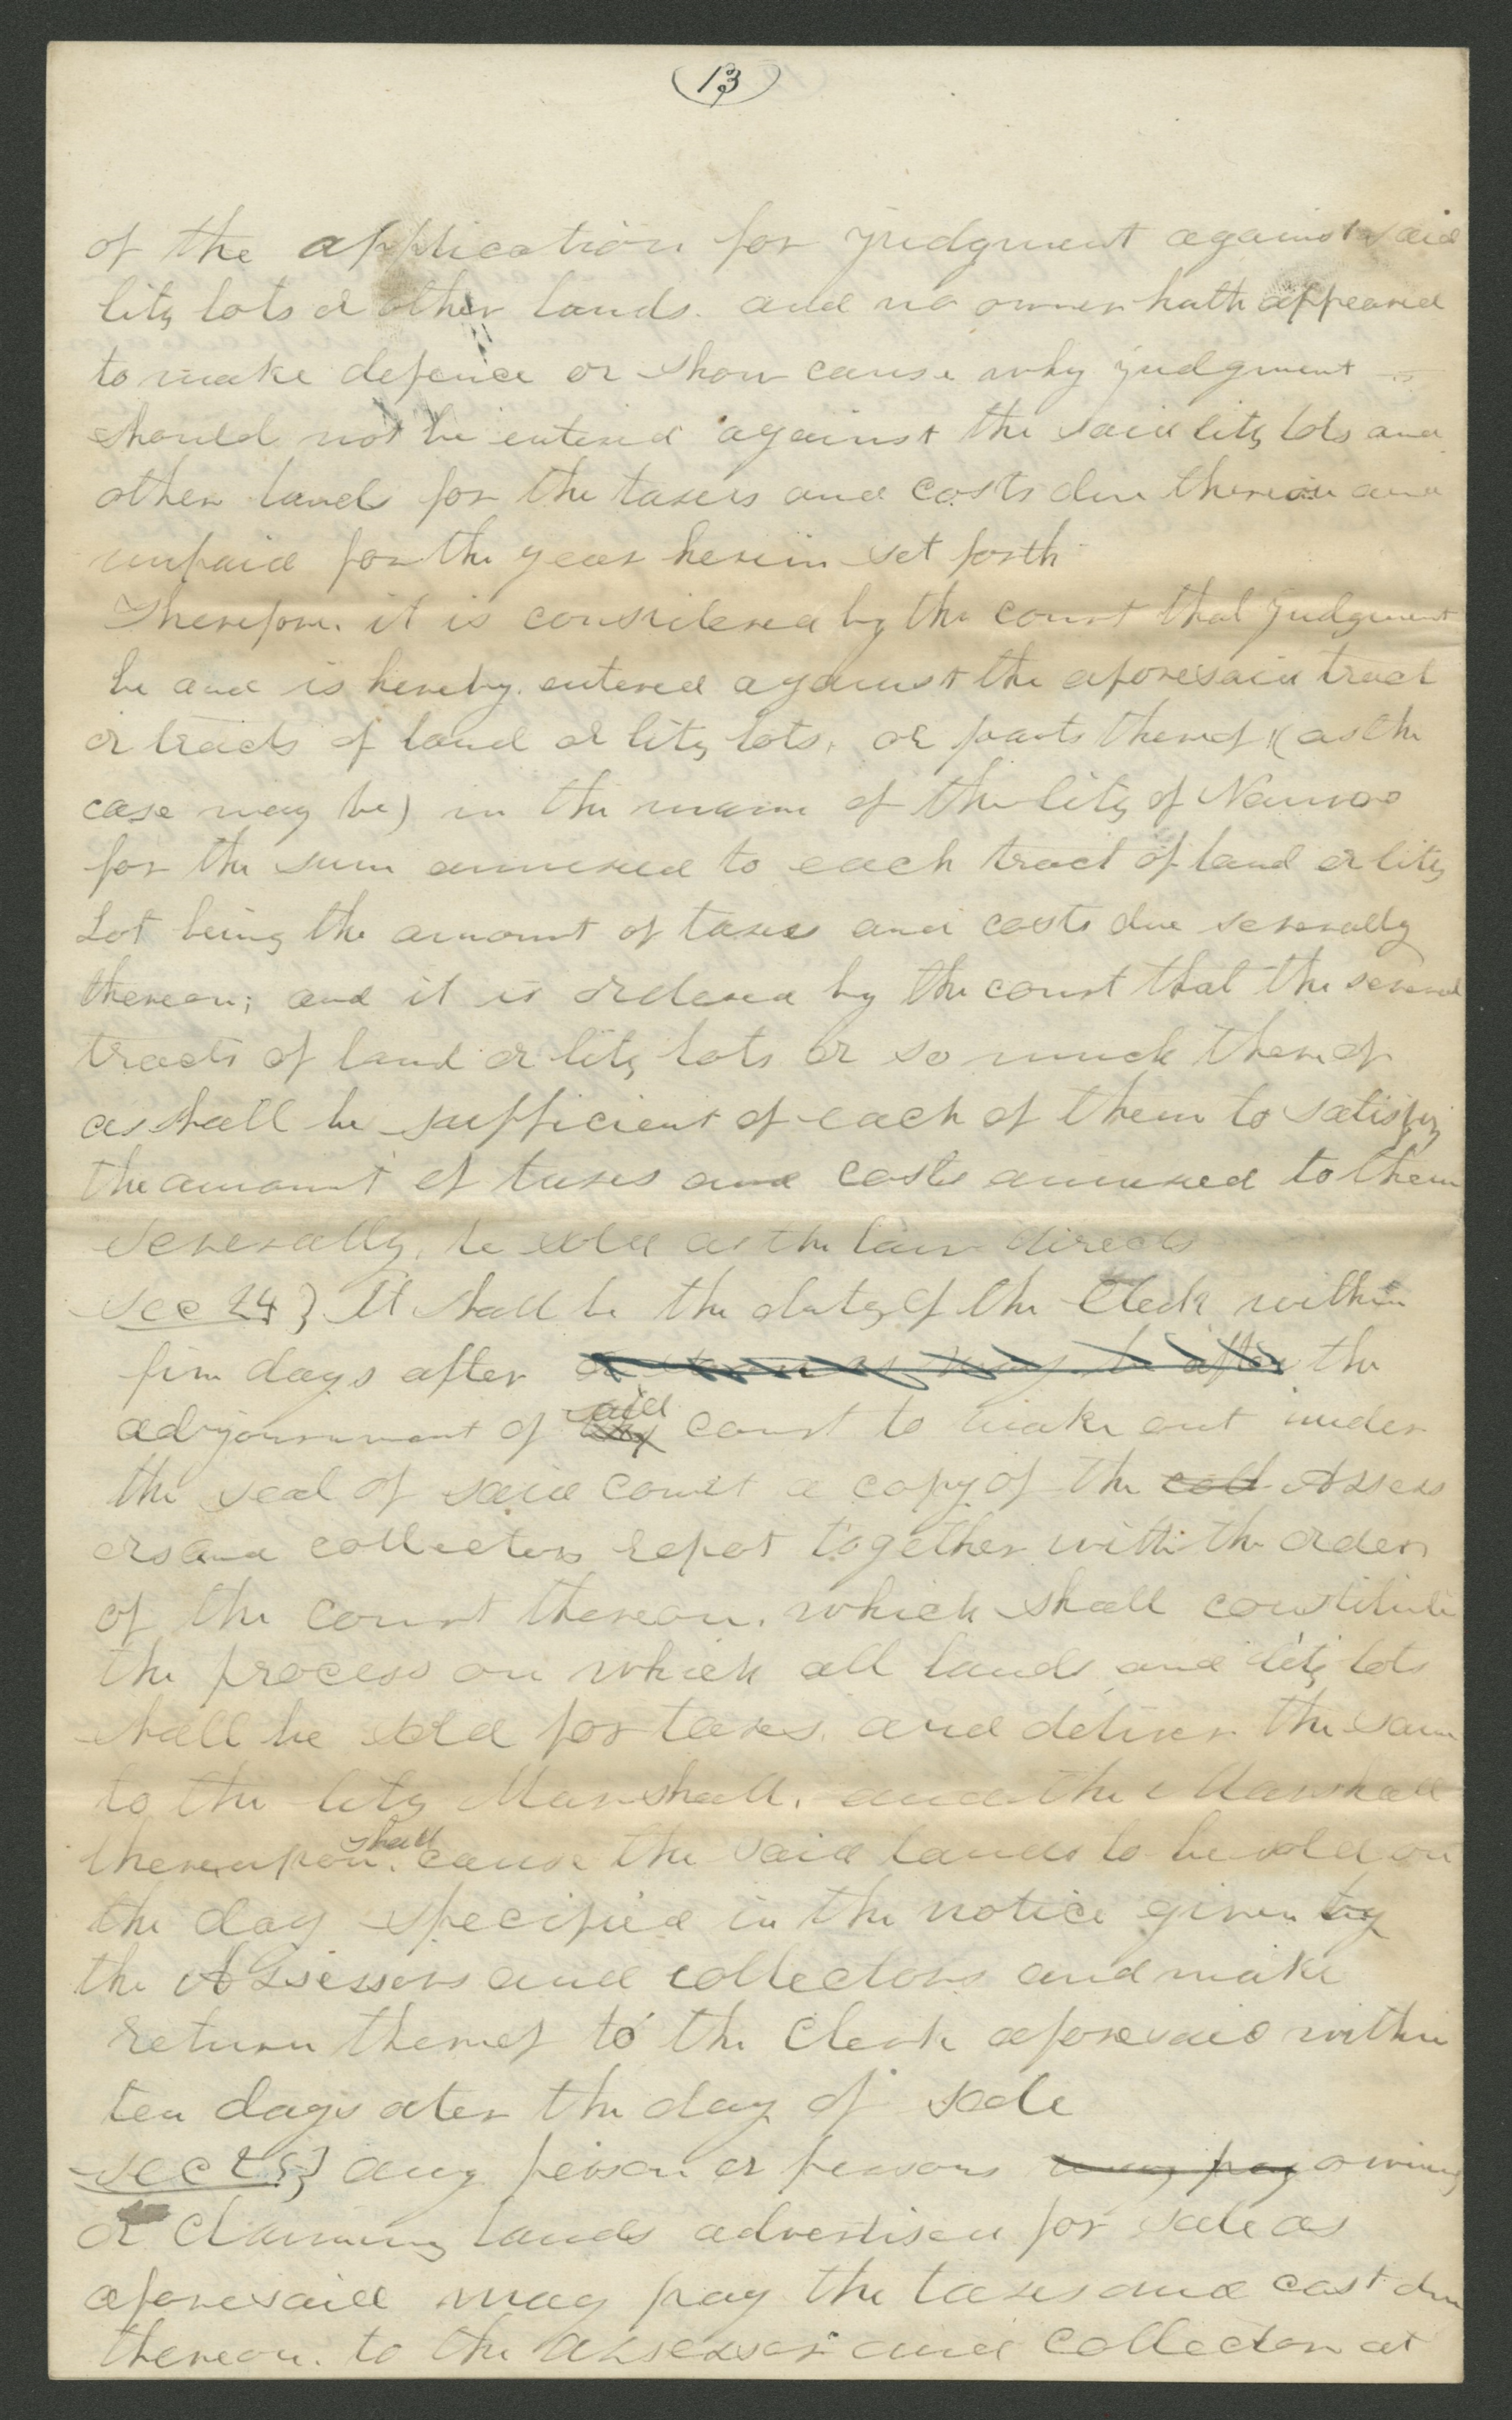 13
of the application for judgment against said
City lots or other lands. and no owner hath appeared
to make defence or show cause why judgment
should not be entered against the said City lots and
other lands for the taxes and costs due thereon and
unpaid for the year herein set forth
Therefore it is considered by the court that judgment
be and is hereby entered against the aforesaid tract
or tracts of land or City lots, or parts thereof (as the
case may be) in the name of the City of Nauvoo
for the sum annexed to each tract of land or City
Lot being the amount of taxes and costs due severally
thereon; and it is ordered by the court that the several
tracts of land or City lots or so much thereof
as shall be sufficient of each of them to satisfy
the amount of taxes and costs annexed to them
severally, be sold as the law directs
Sec 24} It shall be the duty of the Clerk within
five days after or as soon as may be after the
adjournment of said court to make out under
the seal of said court a copy of the coll Assess
ors and collectors repot together with the order
of the court thereon. which shall constitute
the process on which all lands and City lots
shall be sold for taxes. and deliver the same
to the City Marshall. and the Marshall
thereupon shall cause the said lands to be sold on
the day specified in the notice given by
the Assessors and collectors and make
return thereof to the Clerk aforesaid within
ten days ater the day of sale
Sec 25} any person or persons may pay owning
or Claiming lands advertised for sale as
aforesaid may pay the taxes and cost due
thereon. to the assessor and collector at